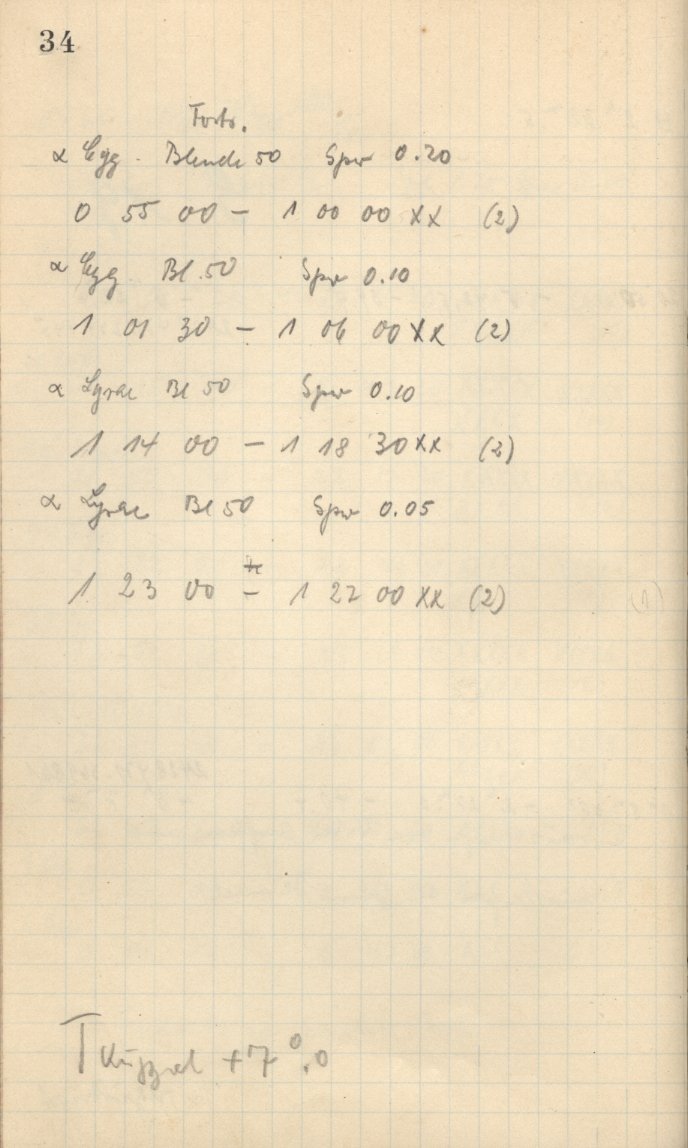 34
Forts.
α Cygg. Blende 50 Spw 0.20
0 55 00 – 1 00 00 XX (2)
α Cygg. Bl. 50 Spw 0.10
1 01 30 – 1 06 00 XX (2)
α Lyrae Bl 50 Spw 0.10
1 14 00 – 1 18 30 XX (2)
α Lyrae Bl 50 Spw 0.05
1 23 00 – 1 27 00 XX (2)
T +7°.0